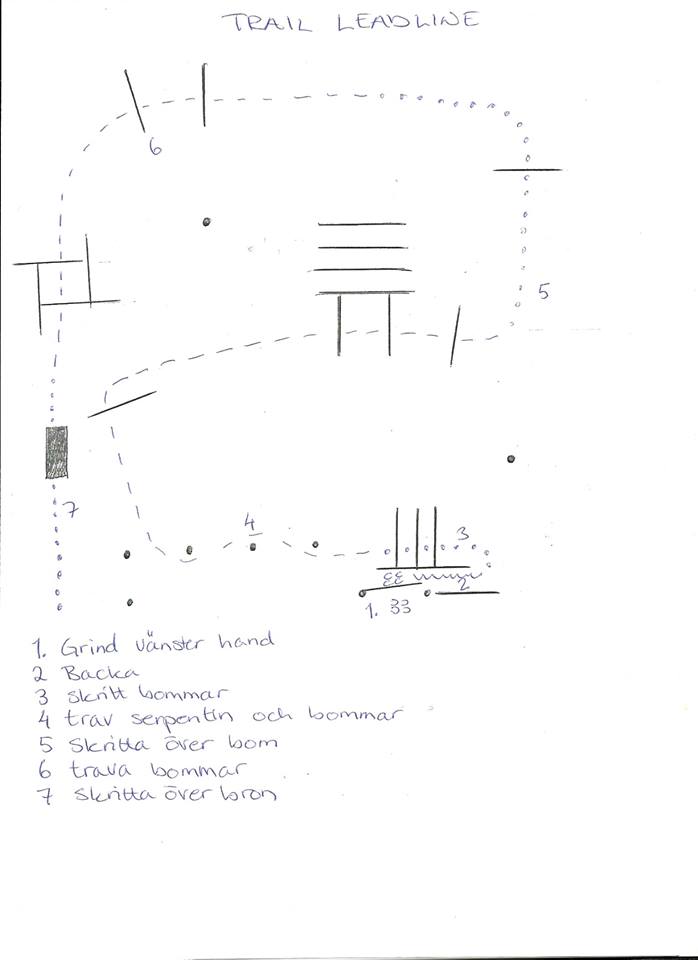 TRAIL LEADLINE
6
5
7
4
3
2
1.
1. Grind vänster hand
2 Backa
3 skritt bommar
4 trav serpentin och bommar
5 Skritta över bom
6 trava bommar
7 Skritta över bron